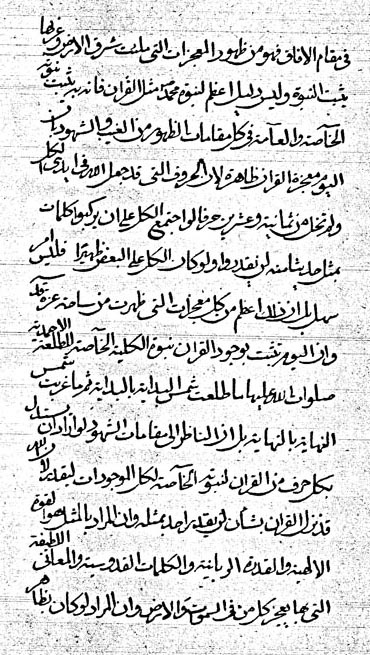 في مقام الافاق فهو من ظهور المعجزات التي ملئت شرق الارض وغربها
يثبت النبوة وليس دليل اعظم لنبوة محمد مثل القران فانه به يثبت نبوته
الخاصة والعامة في كل مقامات الظهور من الغيب والشهود وان
اليوم معجزة القران ظاهرة لان الحروف التي قد جعل الله في ايدي الكل
ولم تخل من ثمانية وعشرين حرفا لو اجتمع الكل على ان يركبوا كلمات
مثل حديث منه لن يقدروا ولو كان الكل على البعض ظهيرا فليس امر
سهل بل ان ذلك اعظم من كل معجزات التي ظهرت من ساحة عز قدسه
وان اليوم تثبت بوجود القران نبوة الكلية الخاصة لطلعة الاحمدية
صلوات الله عليها ما طلعت شمس البداية بالبداية ثم ما غربت شمس
النهاية بالنهاية بل ان الناظر الى مقامات الشهود لو اراد ان يستدل
بكل حرف من القران لنبوته الخاصة لكل الوجودات ليقدر لان الله
قد نزل القران بشأن لن يقدر احد بمثله وان المراد بالمثل هو القوة
الالهية والقدرة الربانية والكلمات القدوسية والمعاني اللطيفة
التي بها يعجز كل من في السموات والارض وان المراد لو كان بظاهر